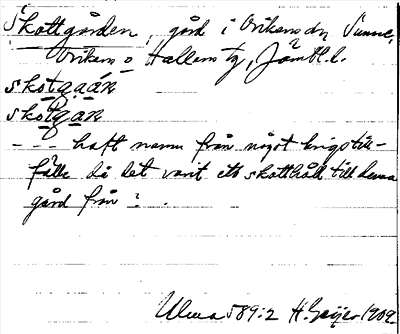 Skottgården, gård i Ovikens sn, Sunne,
Ovikens o Hallens tg, Jämtl. l.
skotgaán
skotgan
- - - haft namn från något krigstill-
fälle då det varit ett skotthåll till denna
gård från ? .
Ulma 589:2 H. Geijer 1909.